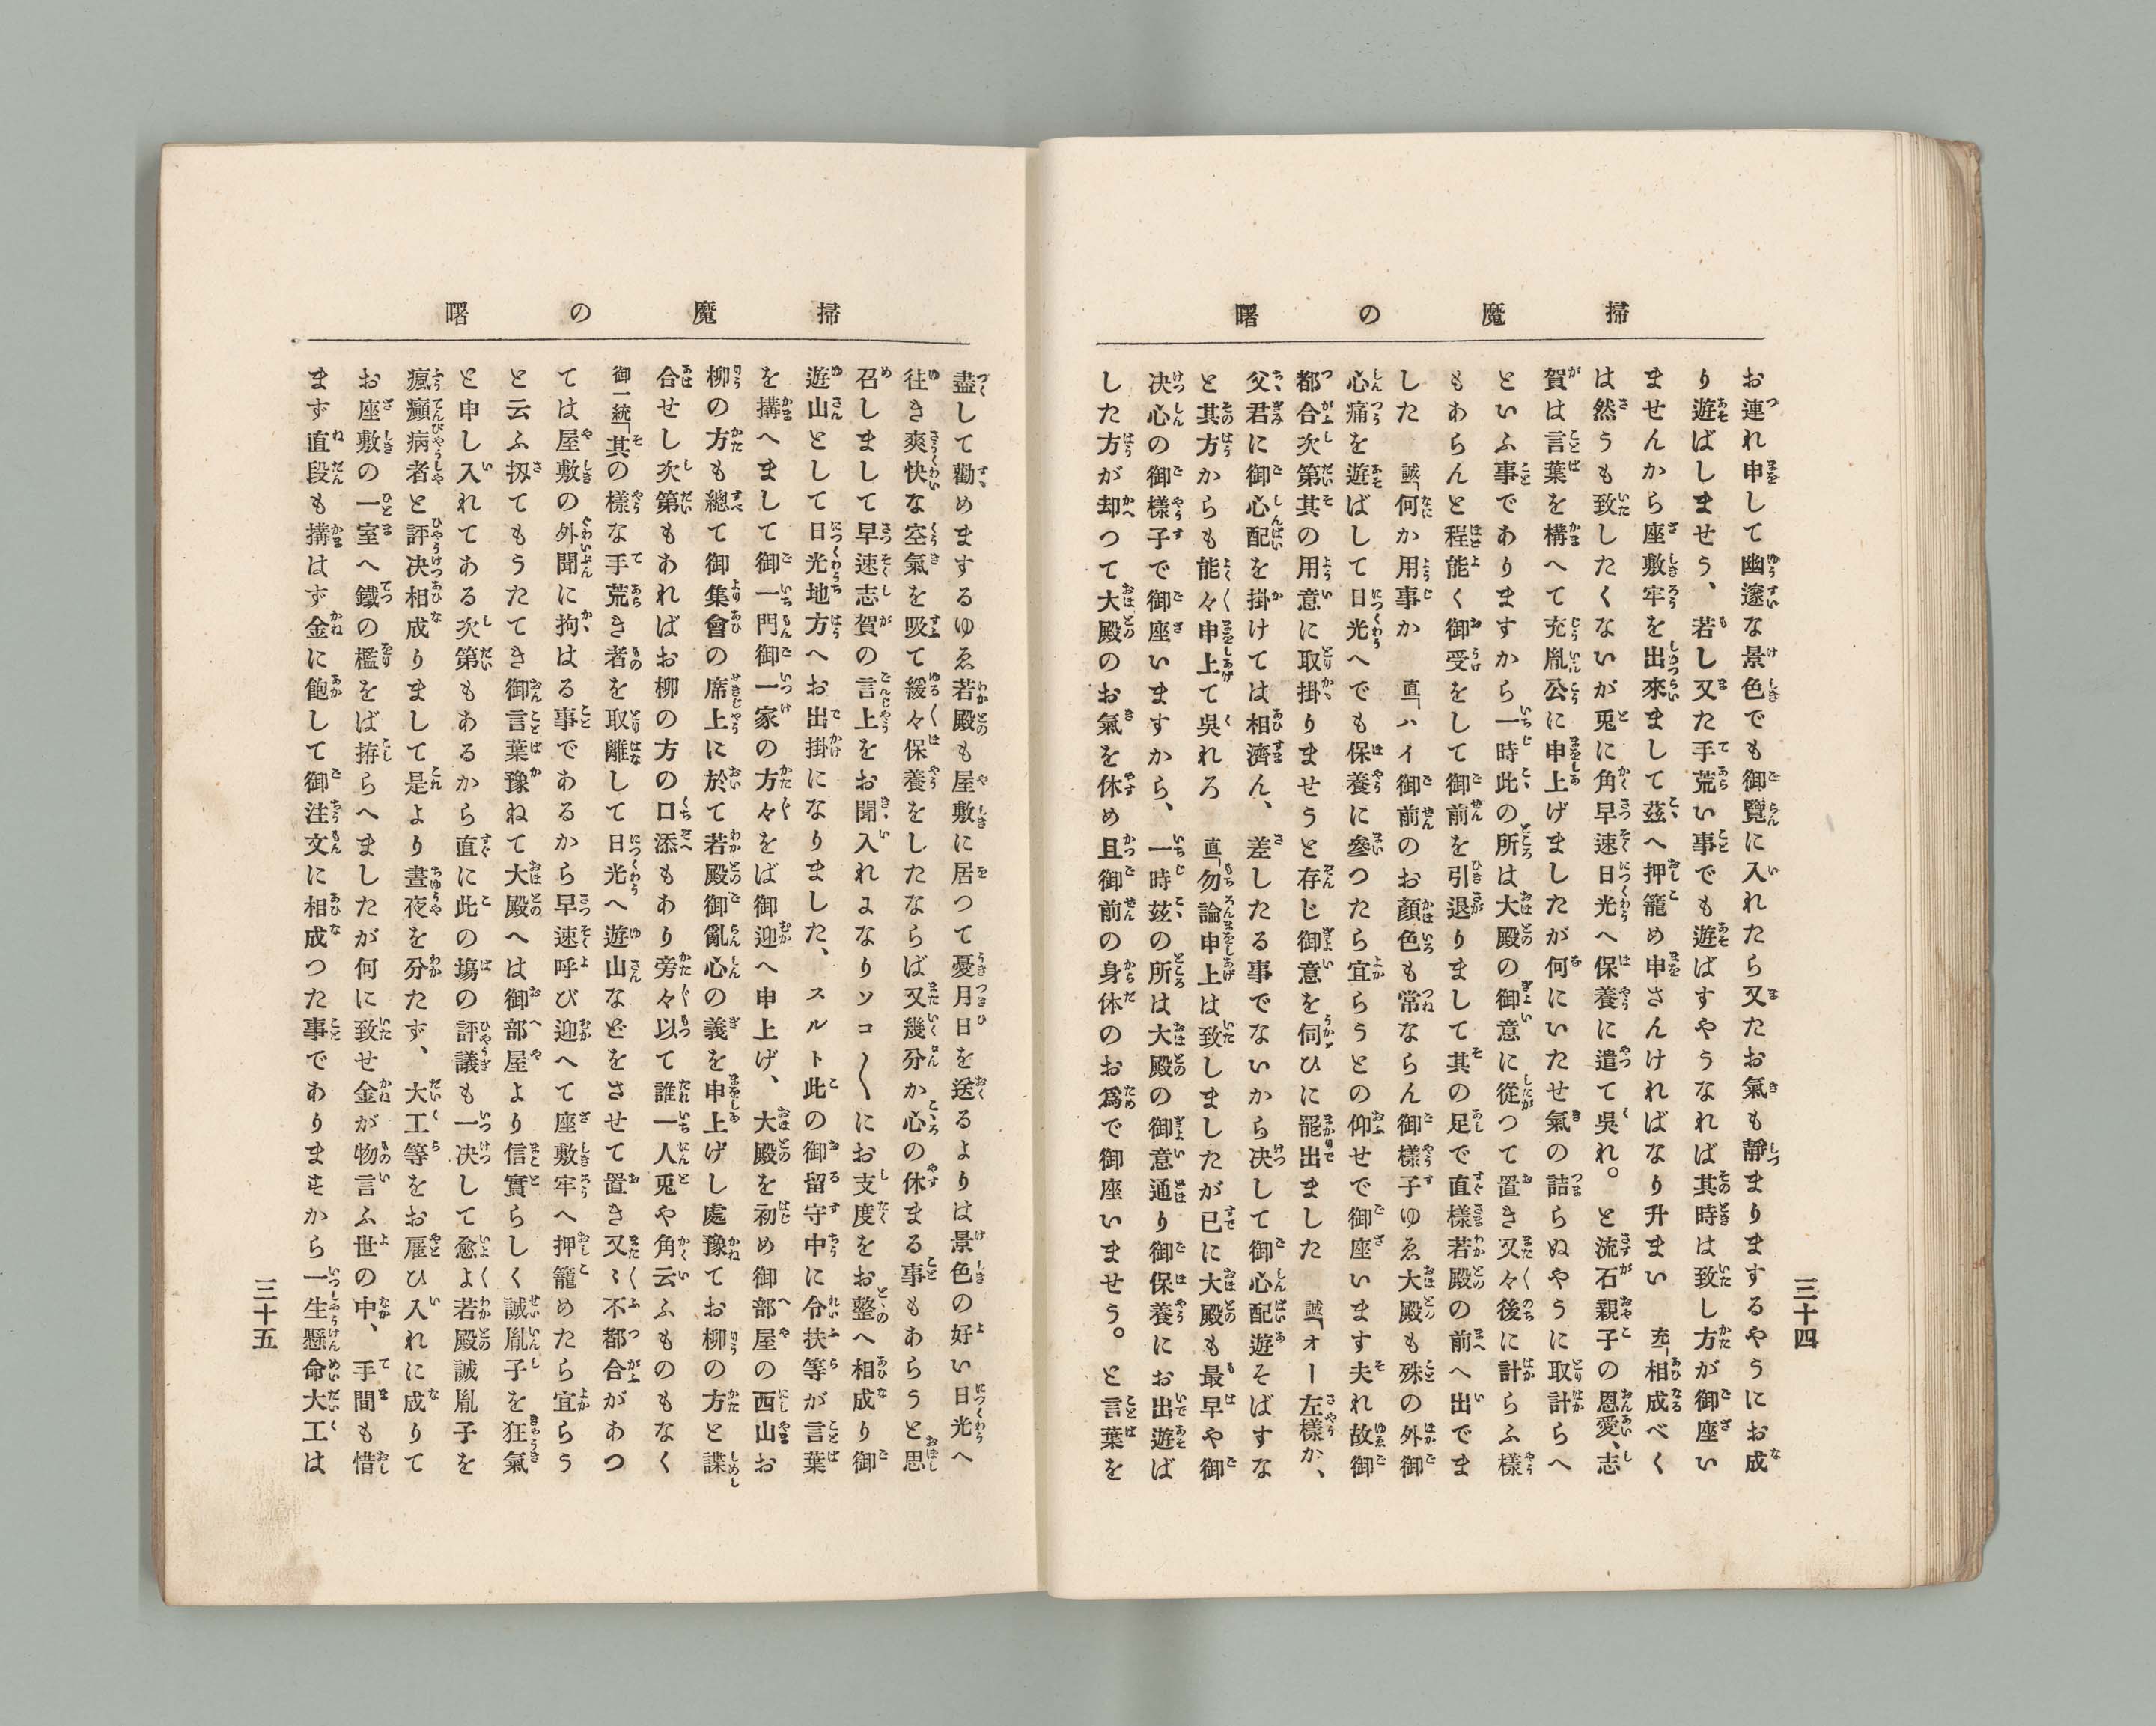 掃魔の曙
お連れ申して幽邃な景色でも御覽に入れたら又たお氣も靜まりまするやうにお成
り遊ばしませう、若し又た手荒い事でも遊ばすやうなれば其時は致し方が御座い
ませんから座敷牢を出來まして茲へ押籠め申さんければなり升まい　充「相成べく
は然うも致したくないが兎に角早速日光へ保養に遣つて吳れ。と流石親子の恩愛、志
賀は言葉を構へて充胤公に申上げましたが何にいたせ氣の詰らぬやうに取計らへ
といふ事でありますから一時此の所は大殿の御意に從つて置き又々後に計らふ樣
もあらんと程能く御受をして御前を引退りまして其の足で直樣若殿の前へ出でま
した　誠「何か用事か　直「ハイ御前のお顏色も常ならん御樣子ゆゑ大殿も殊の外御
心痛を遊ばして日光へでも保養に參つたら宜らうとの仰せで御座います夫れ故御
都合次第其の用意に取掛りませうと存じ御意を伺ひに罷出ました　誠「オー左樣か、
父君に御心配を掛けては相濟ん、差したる事でないから决して御心配遊そばすな
と其方からも能々申上て吳れろ　直「勿論申上は致しましたが已に大殿も最早や御
决心の御樣子で御座いますから、一時茲の所は大殿の御意通り御保養にお出遊ば
した方が却つて大殿のお氣を休め且御前の身体のお爲で御座いませう。と言葉を
三十四
掃魔の曙
盡して勸めまするゆゑ若殿も屋敷に居つて憂月日を送るよりは景色の好い日光へ
往き爽快な空氣を吸て緩々保養をしたならば又幾分か心の休まる事もあらうと思
召しまして早速志賀の言上をお聞入れになりソコ〳〵にお支度をお整へ相成り御
遊山として日光地方へお出掛になりました、スルト此の御留守中に令扶等が言葉
を搆へまして御一門御一家の方々をば御迎へ申上げ、大殿を初め御部屋の西山お
柳の方も總て御集會の席上に於て若殿御亂心の義を申上げし處豫てお柳の方と諜
合せし次第もあればお柳の方の口添もあり旁々以て誰一人兎や角云ふものもなく
御一統「其の樣な手荒き者を取離して日光へ遊山などをさせて置き又〻不都合があつ
ては屋敷の外聞に拘はる事であるから早速呼び迎へて座敷牢へ押籠めたら宜らう
と云ふ扨てもうたてき御言葉豫ねて大殿へは御部屋より信實らしく誠胤子を狂氣
と申し入れてある次第もあるから直に此の塲の評議も一决して愈よ若殿誠胤子を
瘋癲病者と評决相成りまして是より晝夜を分たず、大工等をお雇ひ入れに成りて
お座敷の一室へ鐵の檻をば拵らへましたが何に致せ金が物言ふ世の中、手間も惜
ます直段も搆はず金に飽して御注文に相成つた事でありますから一生懸命大工は
三十五